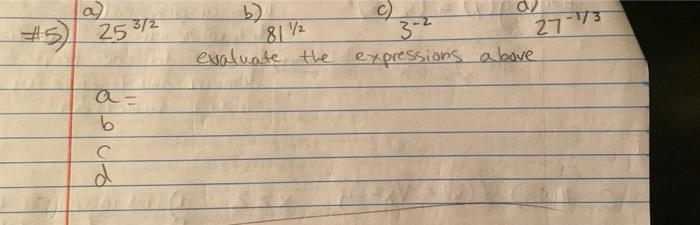 a) b) c) d)
#5) 25^3/2 81^1/2 3^-2 27^-1/3
evaluate the expressions above
a =
b
c
d